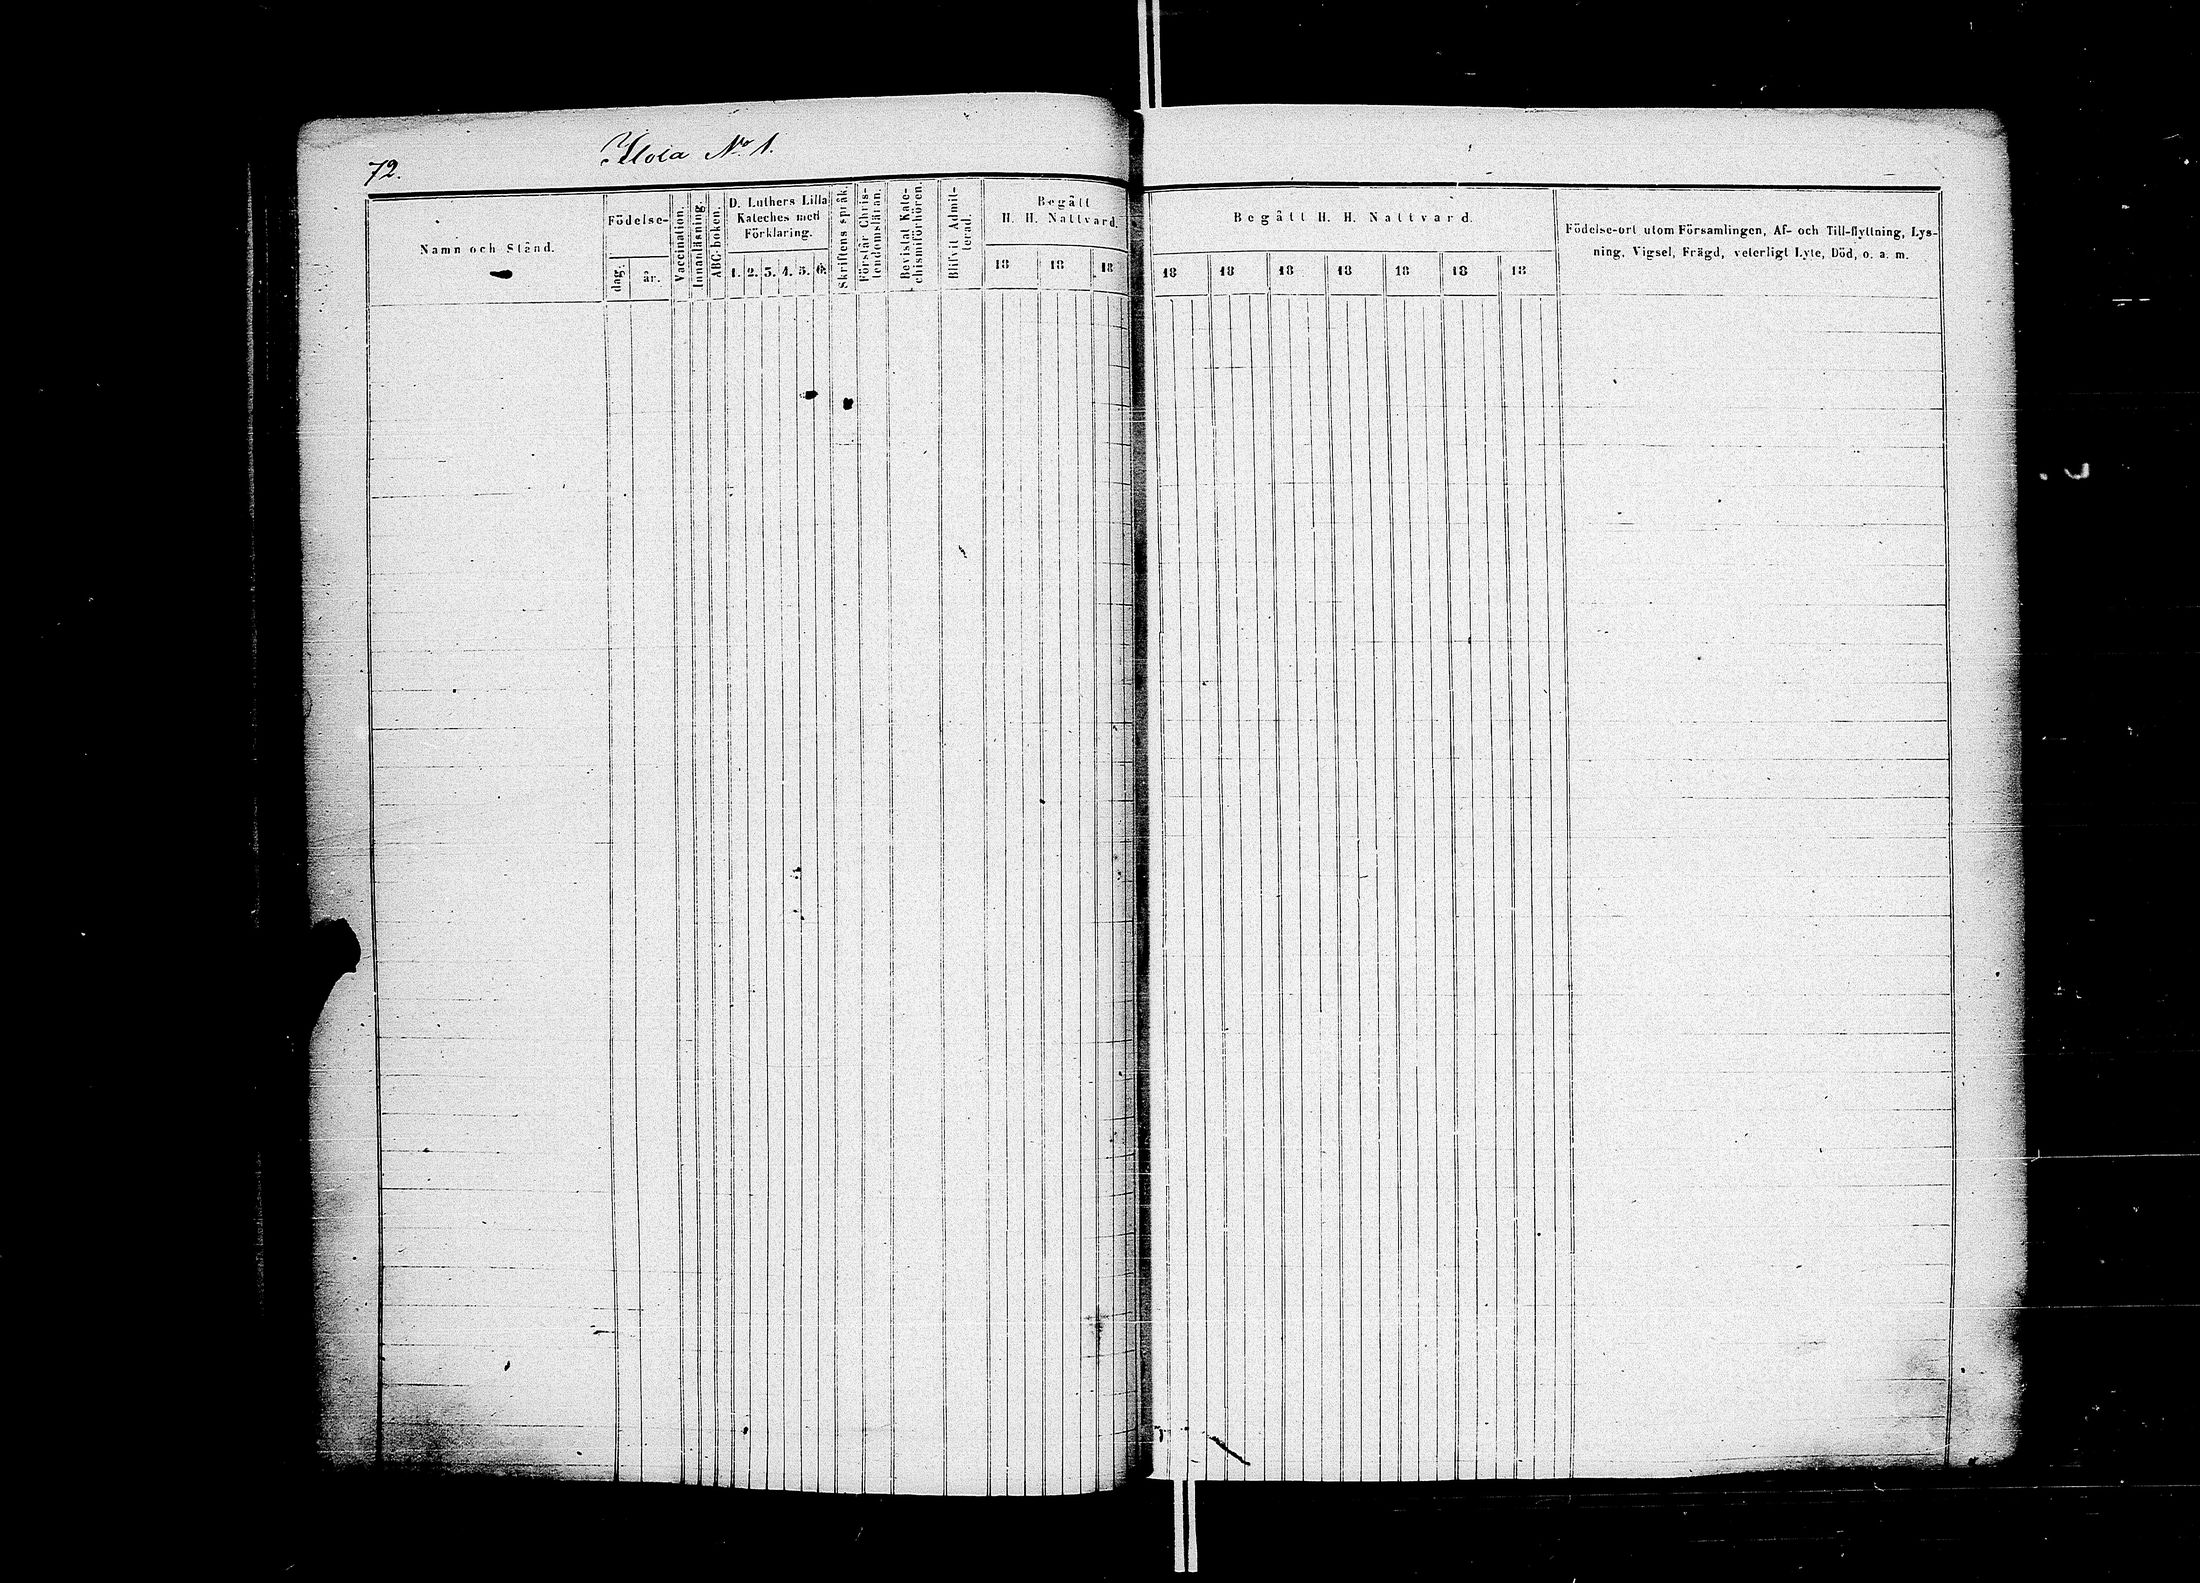 72.
Yloia No 1.
Namn och Stånd.
Födelse-
dag.
år.
Vaccination.
Innanläsning.
ABC-boken.
D. Luthers Lilla
Kateches med
Förklaring.
1. 2. 3. 4. 5. 6.
Skriftens språk.
Förstår Chris-
tendomsläran.
Bevistat Kate-
chismiförhören.
Blifvit Admit-
terad.
Begått
H. H. Nattvard.
18 18 18
Begått H. H. Nattvard.
18 18 18 18 18 18 18
Födelse-ort utom Församlingen, Af- och Till-flyttning, Lys-
ning, Vigsel, Frägd, veterligt Lyte, Död, o. a. m.